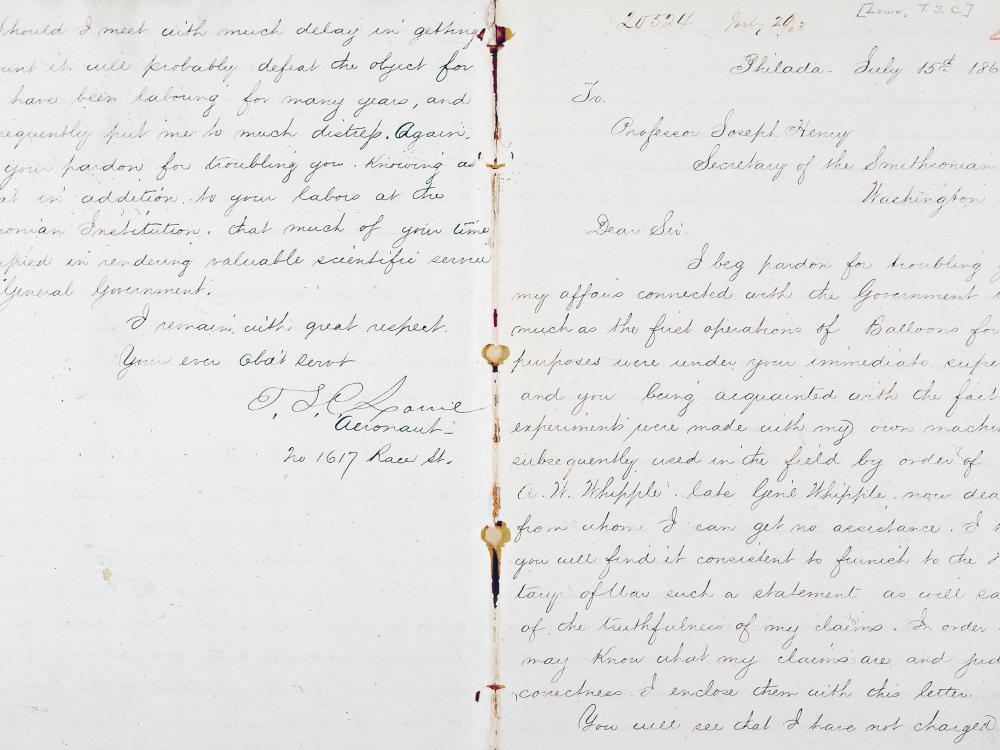 Should I meet with much delay in getting
it will probably defeat the object for
have been labouring for many years, and
put me to much distress. Again.
your pardon for troubling you. Knowing as
in addition to your labors at the
Institution. that much of your time
in rendering valuable scientific service
General Government.
I remain with great respect.
Your ever obdt servt
T. S. C. Lowe
Aeronaut-
No 1617 Race St.
20524 July 20/63
[Lowe, T.S.C.]
Philada- July 15th 186
To.
Professor Joseph Henry
Secretary of the Smithsonian
Washington
Dear Sir.
I beg pardon for troubling
my affairs connected with the Government
much as the first operations of Balloons for
purposes were under your immediate
and you being acquainted with the fact
experiments were made with my own
subsequently used in the field by order of
A. W. Whipple. late Genl Whipple. now
from whom I can get no assistance. I
you will find it consistent to furnish to the
tary of War such a statement as will
of the truthfulness of my claims. In order
may know what my claims are and
correctness. I enclose them with this letter.
You will see that I have not charged